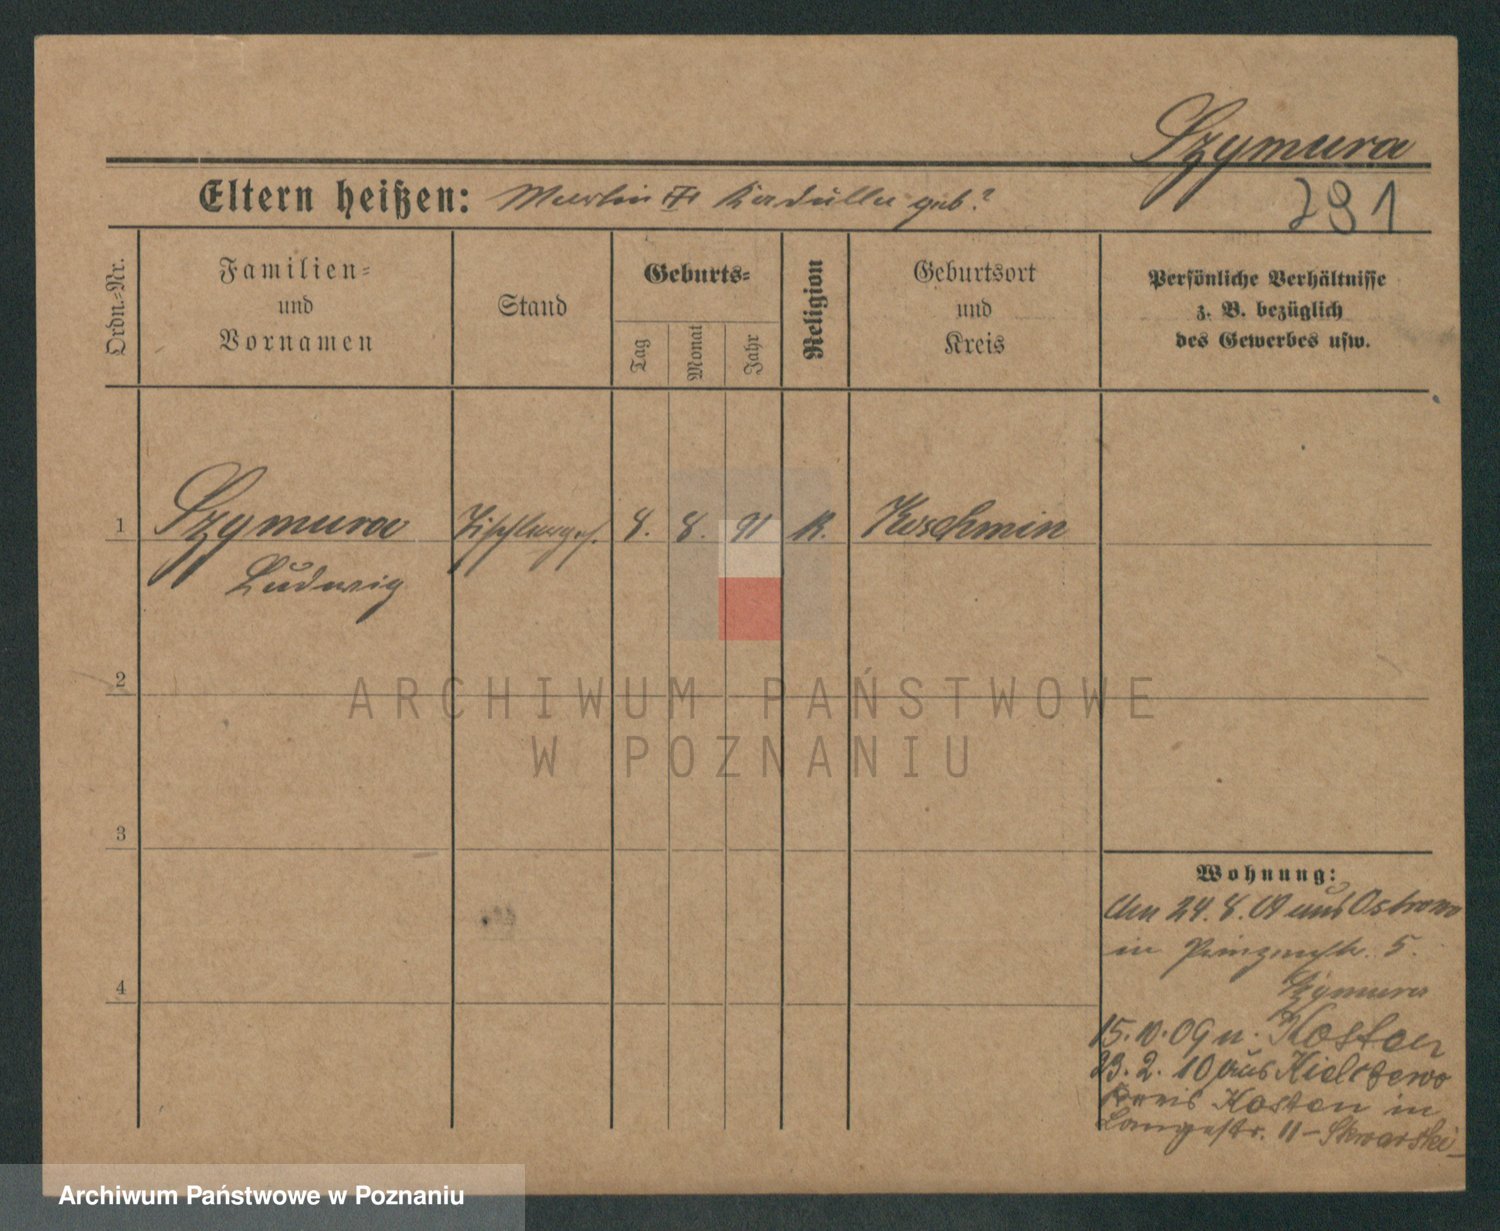 Szymura
Eltern heißen: Martin geb?
291
Ordn.-Nr.
Familien-
und
Vornamen
Stand
Geburts-
Tag
Monat
Jahr
Religion
Geburtsort
und
Kreis
Persönliche Verhältnisse
z. B. bezüglich
des Gewerbes usw.
1 Szymura Tischlerges. 8. 8. 91 K. Koschmin
Ludwig
2
3
4
ARCHIWUM PAŃSTWOWE
W POZNANIU
Wohnung:
24. 8. 09 aus Ostrowo
in 5.
Szymura
15. 10. 09 n. Kosten
23. 2. 10 aus Kielczewo
Kreis Kosten in
Langestr. 11 - Skwarski
Archiwum Państwowe w Poznaniu